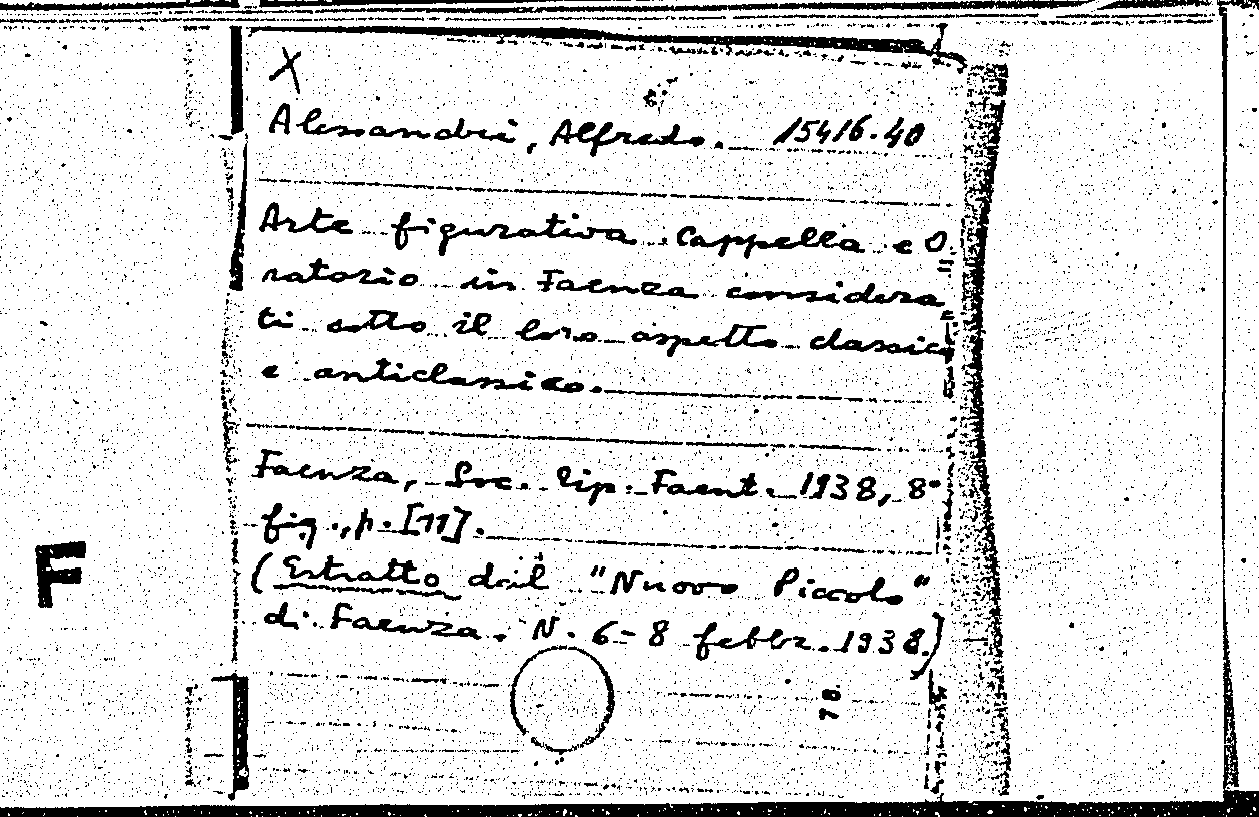 X
Alessandri, Alfredo. 15416.40
Arte figurativa. Cappella e O
ratorio in Faenza considera
ti sotto il loro aspetto classico
e anticlassico.
Faenza, Soc. Tip. Faent. 1938, 8°
fig., p. [11].
(Estratto dal "Nuovo Piccolo"
di Faenza. N. 6-8 febbr. 1938.)
78
F